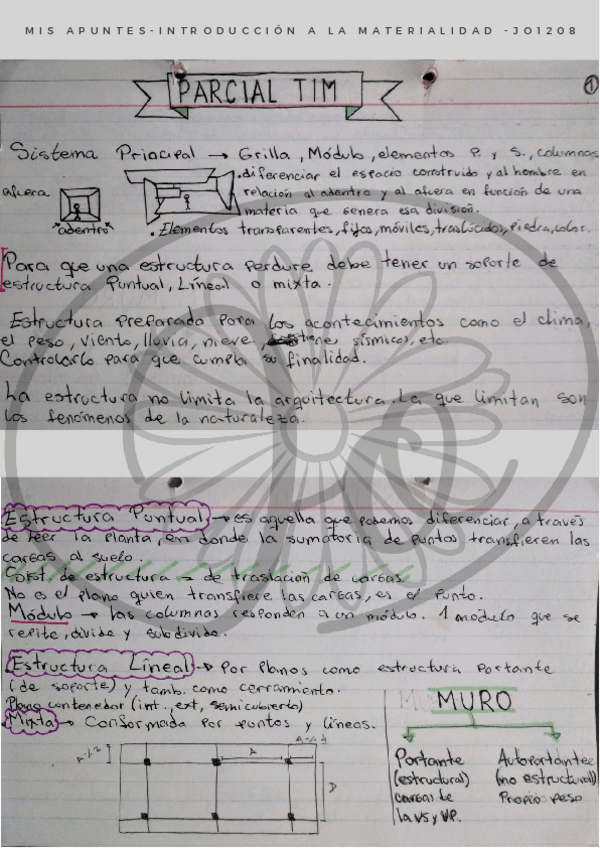 MIS APUNTES-INTRODUCCIÓN A LA MATERIALIDAD -JO1208
PARCIAL TIM
1
Sistema Principal → Grilla, Módulo, elementos P. y S., columnas
• diferenciar el espacio construido y al hombre en
afuera
relación al adentro y al afuera en función de una
materia que genera esa división.
adentro
• Elementos transparentes, fijos, móviles, traslúcidos, piedra, color.
Para que una estructura perdure debe tener un soporte de
estructura Puntual, Líneal o mixta.
Estructura preparada para los acontecimientos como el clima,
el peso, viento, lluvia, nieve, sísmicos, etc
Controlarlo para que cumpla su finalidad.
La estructura no limita la arquitectura. La que limitan son
los fenómenos de la naturaleza.
Estructura Puntual → es aquella que podemos diferenciar, a través
de leer la planta, en donde la sumatoria de puntos transfieren las
cargas al suelo.
Const. de estructura → de traslación de cargas.
No es el plano quien transfiere las cargas, es el Punto.
Módulo → las columnas responden a un módulo. 1 módulo que se
repite, divide y subdivide.
Estructura Líneal → Por Planos como estructura Portante
(de soporte) y tamb. como cerramiento.
Plano contenedor (int., ext, semicubierto)
Mixta → Conformada por puntos y líneas.
MURO
Portante
(estructural)
cargas de
la VS y VP.
Autoportante
(no estructural)
Propio peso
A
D